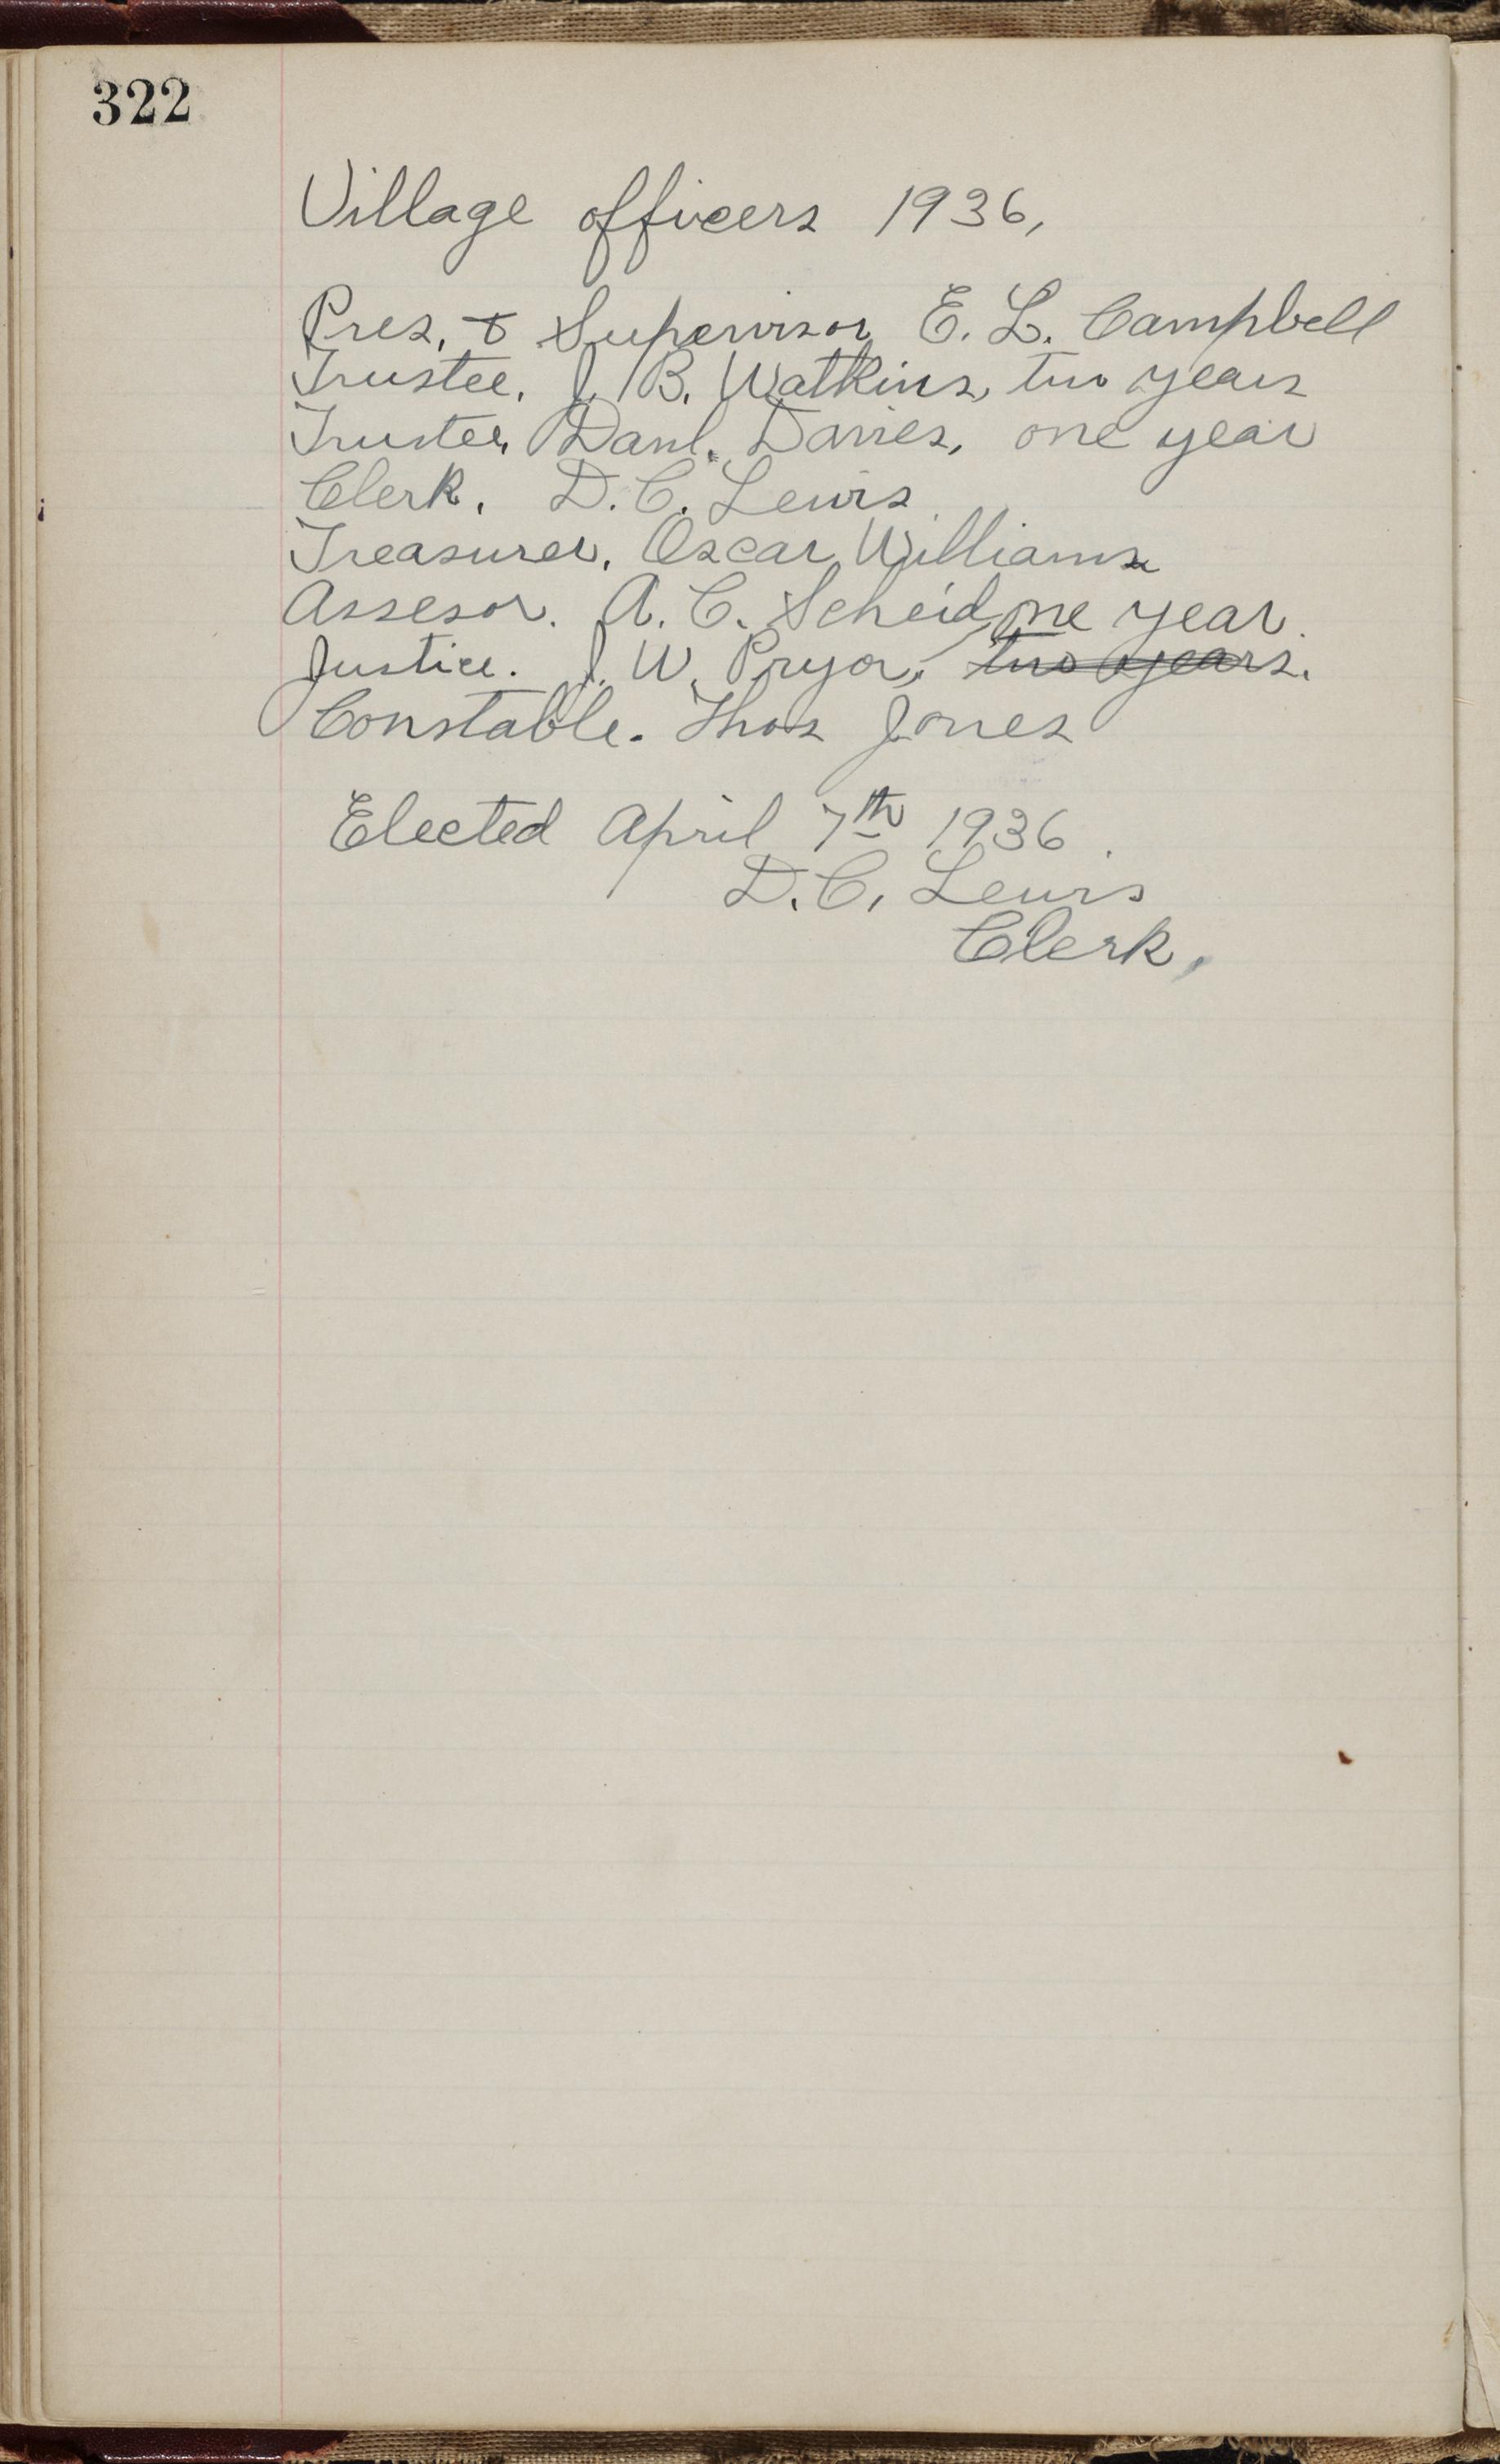 322
Village officers 1936,
Pres. & Supervisor E. L. Campbell
Trustee. J. B. Watkins, two years
Trustee, Danl. Davies, one year
Clerk. D. C. Lewis
Treasurer. Oscar Williams
Assesor. A. C. Scheid, one year.
Justice. J. W. Pryor, two years.
Constable. Thos Jones
Elected April 7th 1936.
D. C. Lewis
Clerk,